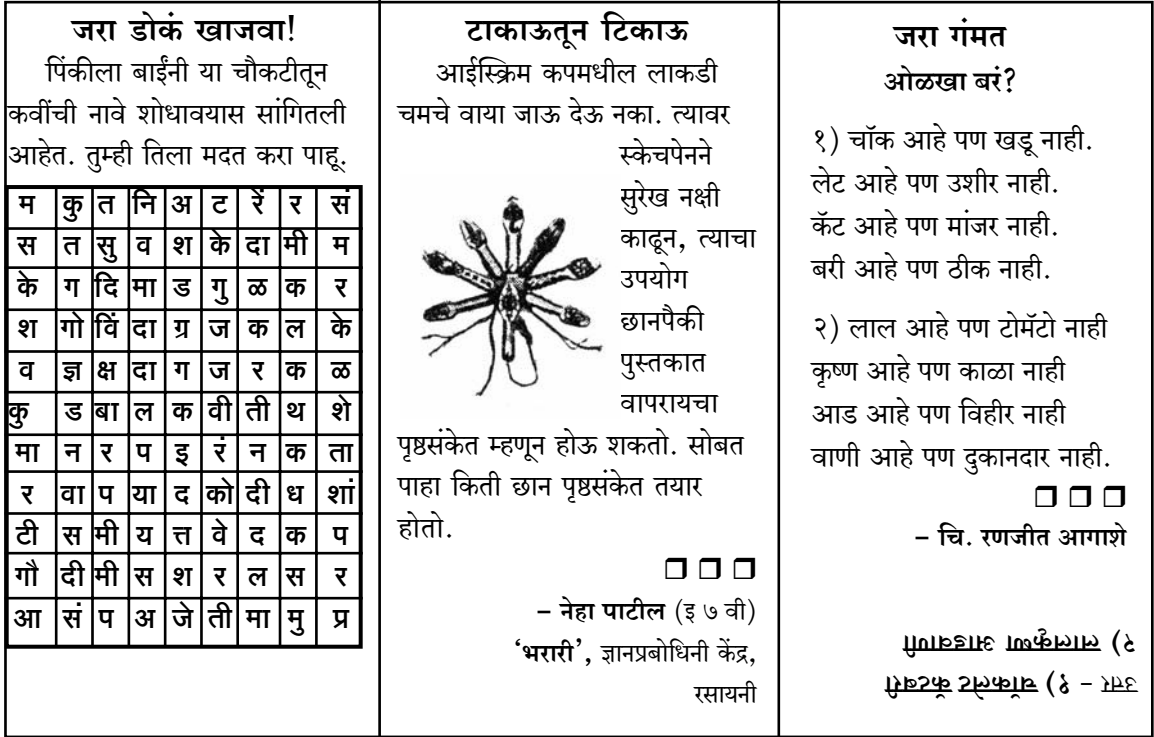 जरा डोकं खाजवा!
पिंकीला बाईंनी या चौकटीतून
कवींची नावे शोधावयास सांगितली
आहेत. तुम्ही तिला मदत करा पाहू.
म कु त नि अ ट रें र सं
स त सु व श के दा मी म
के ग दि मा ड गु ळ क र
श गो विं दा ग्र ज क ल के
व ज्ञ क्ष दा ग ज र क ळ
कु ड बा ल क वी ती थ शे
मा न र प इ रं न क ता
र वा प या द को दी ध शां
टी स मी य त्त वे द क प
गौ दी मी स श र ल स र
आ सं प अ जे ती मा मु प्र
टाकाऊतून टिकाऊ
आईस्क्रिम कपमधील लाकडी
चमचे वाया जाऊ देऊ नका. त्यावर
स्केचपेनने
सुरेख नक्षी
काढून, त्याचा
उपयोग
छानपैकी
पुस्तकात
वापरायचा
पृष्ठसंकेत म्हणून होऊ शकतो. सोबत
पाहा किती छान पृष्ठसंकेत तयार
होतो.
– नेहा पाटील (इ ७ वी)
‘भरारी’, ज्ञानप्रबोधिनी केंद्र,
रसायनी
जरा गंमत
ओळखा बरं?
१) चॉक आहे पण खडू नाही.
लेट आहे पण उशीर नाही.
कॅट आहे पण मांजर नाही.
बरी आहे पण ठीक नाही.
२) लाल आहे पण टोमॅटो नाही
कृष्ण आहे पण काळा नाही
आड आहे पण विहीर नाही
वाणी आहे पण दुकानदार नाही.
– चि. रणजीत आगाशे
उत्तर – १) चॉकलेट कॅटबरी
२) लालकृष्ण आडवाणी